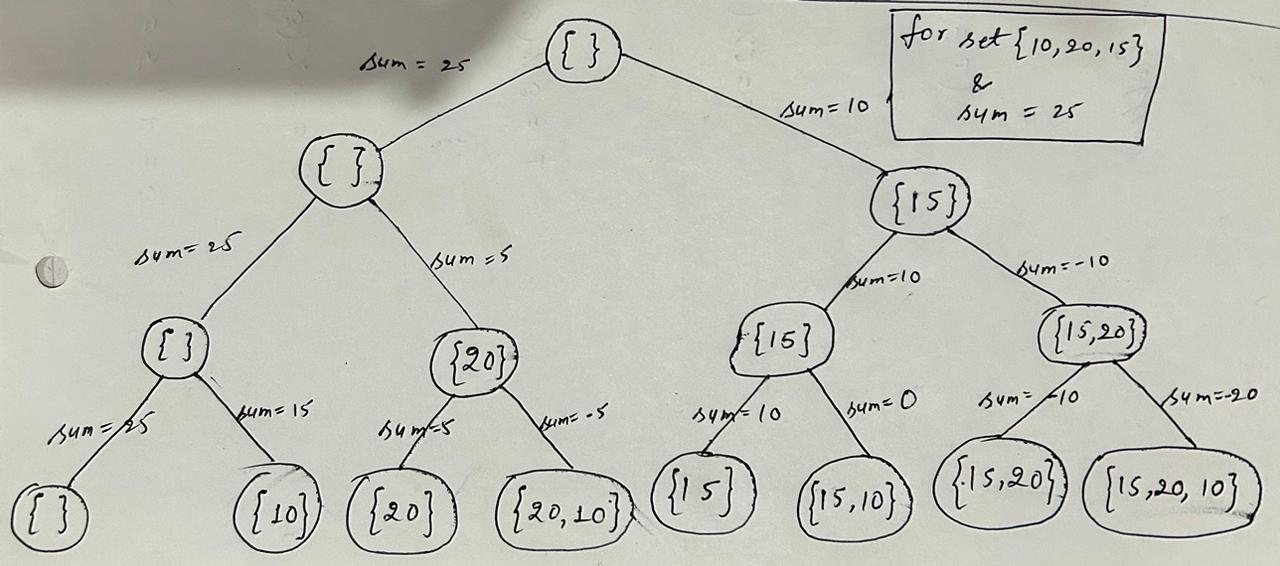 { }
for set {10,20,15}
&
sum = 25
sum = 25
sum=10
{ }
{15}
sum=25
sum=5
sum=10
sum=-10
{ }
{20}
{15}
{15,20}
sum=25
sum=15
sum=5
sum=-5
sum=10
sum=0
sum=-10
sum=-20
{ }
{10}
{20}
{20,10}
{15}
{15,10}
{15,20}
{15,20,10}